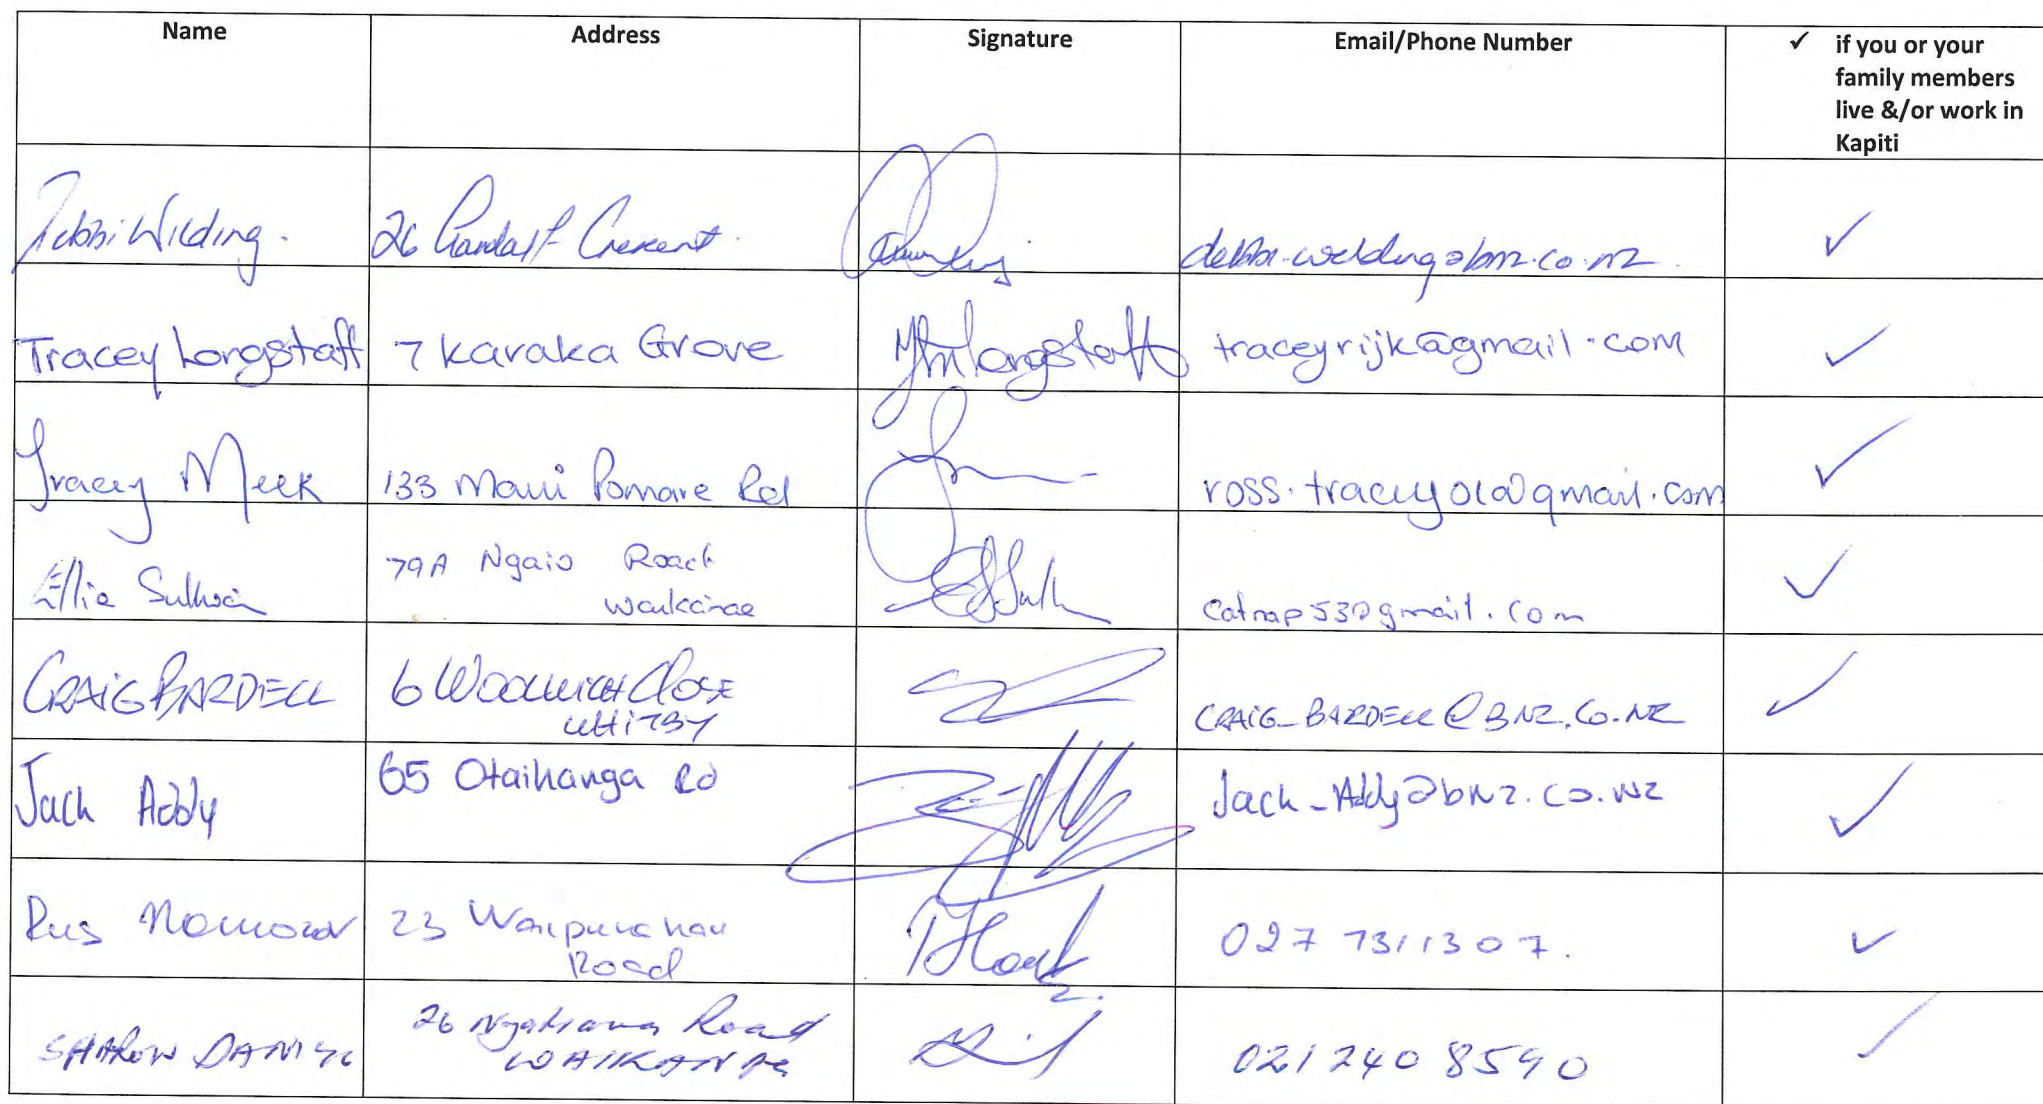 Name Address Signature Email/Phone Number ✓ if you or your
family members
live &/or work in
Kapiti
Debbi Wilding. 26 Gandalf Crescent. debbi-wilding@bnz.co.nz. ✓
Tracey Longstaff 7 Karaka Grove Longstaff traceyrijk@gmail.com ✓
Tracey Meek 133 Maui Pomare Rd ross.tracey01@gmail.com ✓
Ellie Sullivan 79A Ngaio Road catnap53@gmail.com ✓
Waikanae
CRAIG BARDELL 6 WOOLWICH CLOSE CRAIG_BARDELL@BNZ.CO.NZ ✓
WHITBY
Jack Addy 65 Otaihanga Rd Jack_Addy@bnz.co.nz ✓
Rus 23 Waipunahau 027 7311307. ✓
Road
SHARON 26 Ngahiama Road 021 240 8590 ✓
WAIKANAE